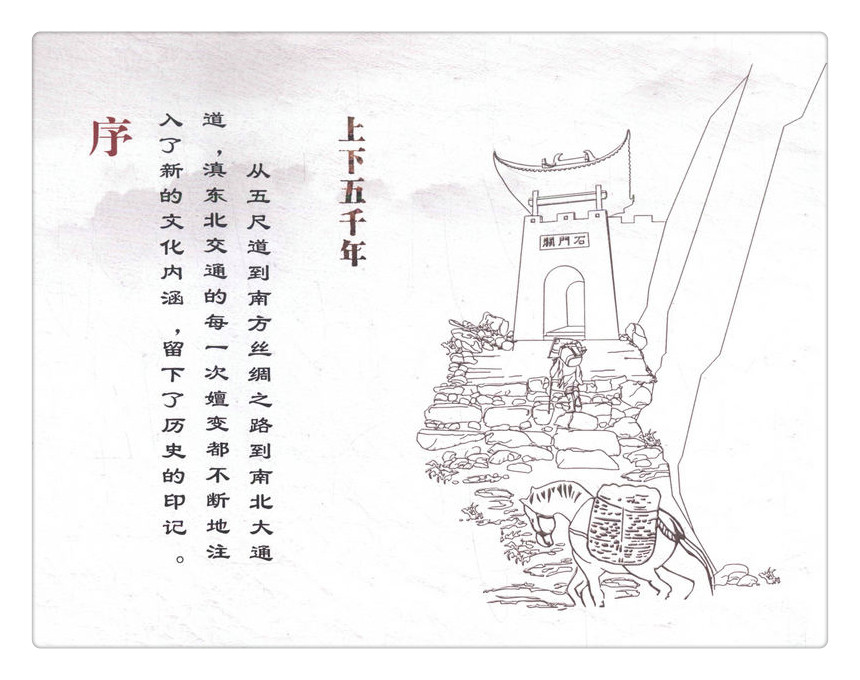 上下五千年
从五尺道到南方丝绸之路到南北大通
道，滇东北交通的每一次嬗变都不断地注
入了新的文化内涵，留下了历史的印记。
序
石門關